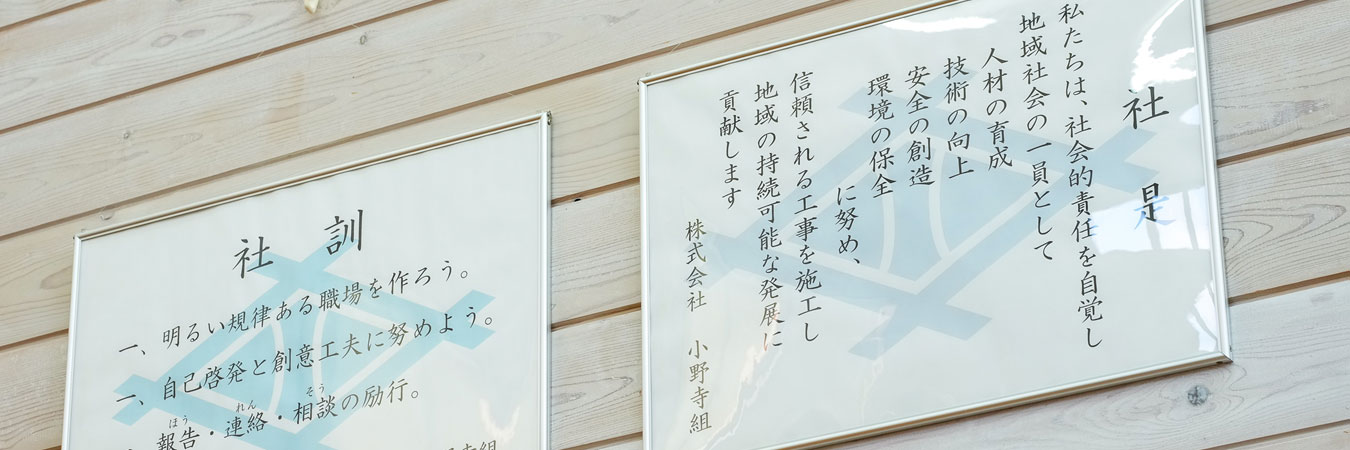 社訓
一、明るい規律ある職場を作ろう。
一、自己啓発と創意工夫に努めよう。
報告・連絡・相談の励行。
ほう れん そう
社是
私たちは、社会的責任を自覚し
地域社会の一員として
人材の育成
技術の向上
安全の創造
環境の保全
に努め、
信頼される工事を施工し
地域の持続可能な発展に
貢献します
株式会社 小野寺組